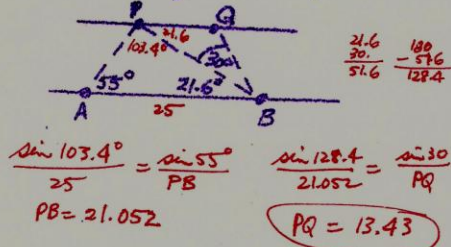 P Q
21.6
103.4° 30°
55° 21.6°
A B
25
21.6
30.
51.6
180
- 51.6
128.4
sin 103.4° / 25 = sin 55° / PB
PB = 21.052
sin 128.4 / 21.052 = sin 30 / PQ
PQ = 13.43